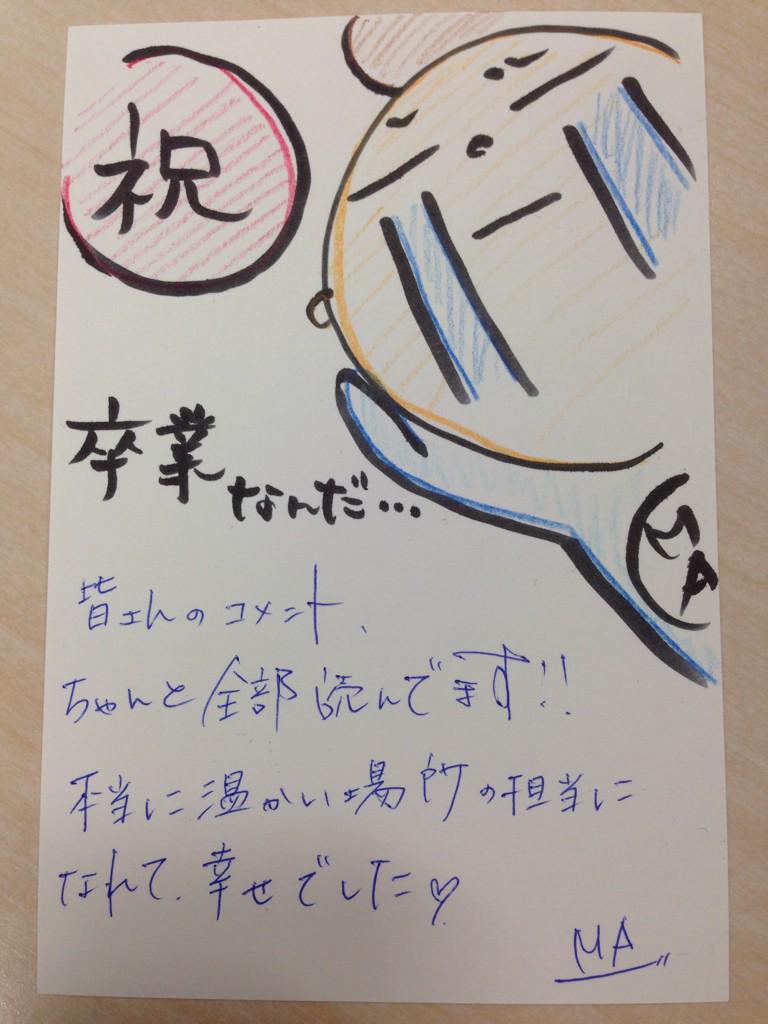 祝
卒業なんだ…
MA
皆さんのコメント、
ちゃんと全部読んでます!!
本当に温かい場所の担当に
なれて、幸せでした♡
MA